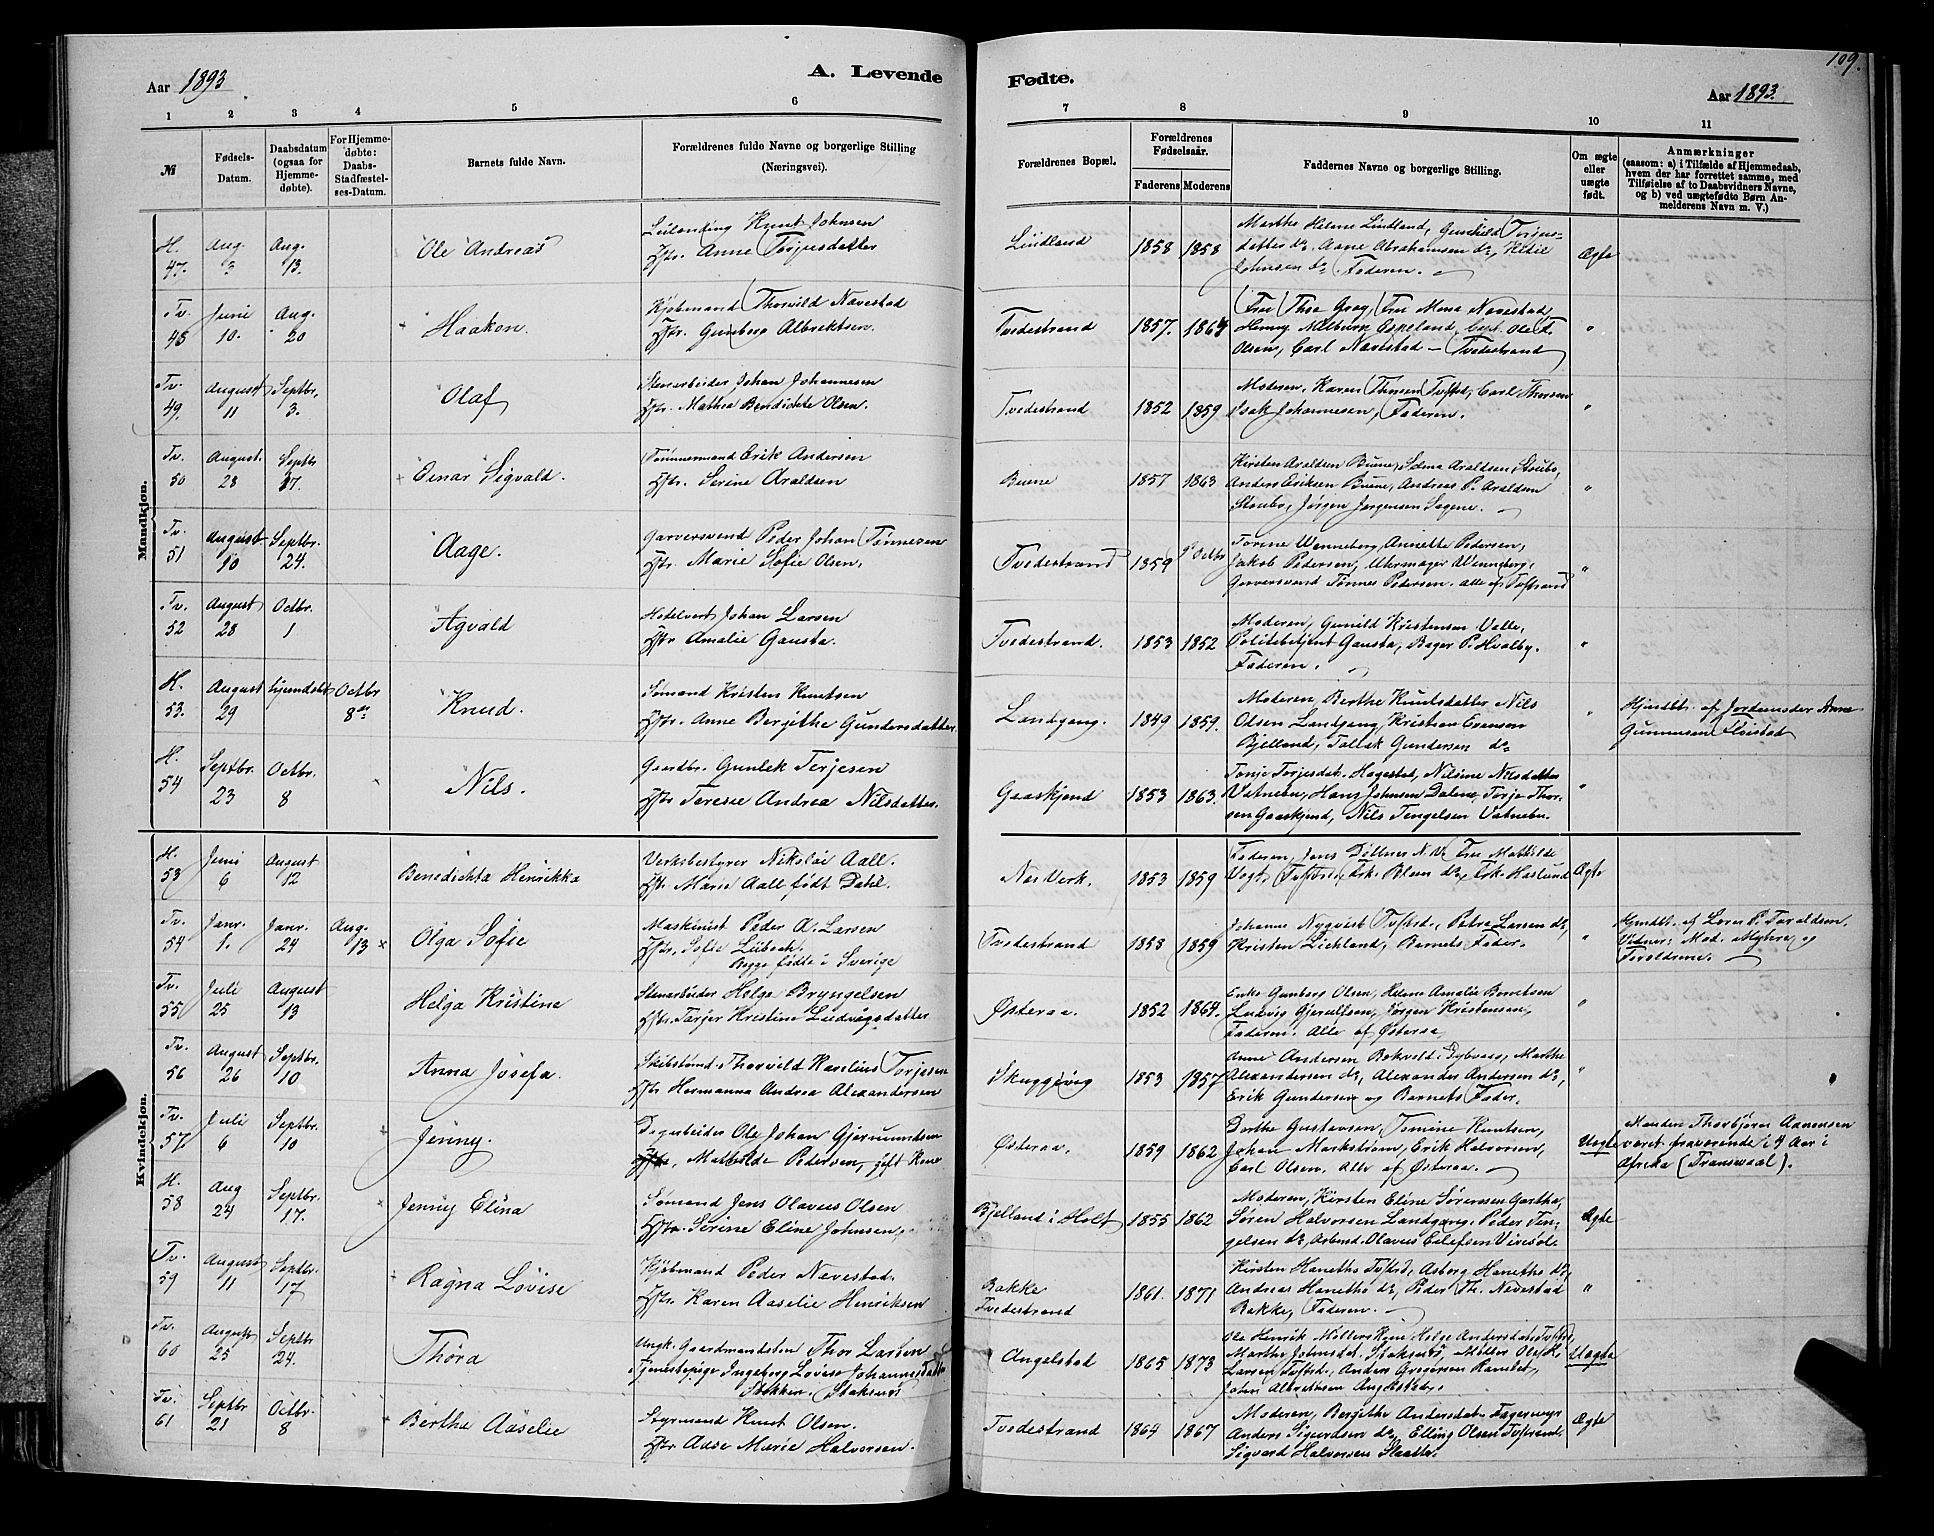 Aar 1893 A. Levende
1 2 3 4 5 6
№ Fødsels-Datum. Daabsdatum (ogsaa for Hjemmedøbte). For Hjemmedøbte: Daabs-Stadfæstelses-Datum. Barnets fulde Navn. Forældrenes fulde Navne og borgerlige Stilling (Næringsvei).
Mandkjøn.
H. 47. Aug. 3 Aug. 13. Ole Andreas Leilending Knut Johnsen
Hstr. Anne Torjusdatter
Tv. 48 Juni 10. Aug. 20 Haakon. Kjøbmand Thorvild Navestad
Hstr. Gunborg Albrektsen.
Tv. 49. August 11 Septbr. 3. Olaf Stenarbeider Johan Johannesen
Hstr. Mathea Bendidete Olsen.
Tv. 50 August. 28 Septbr 17. Einar Sigvald. Tømmermand Erik Andersen
Hstr. Serine Araldsen
Tv. 51 August 10 Septbr. 24. Aage. Garversvend Peder Johan Tønnesen
Hstr. Marie Sofie Olsen.
Tv. 52 August 28 Octbr. 1 Agvald Hotelvert Johan Larsen
Hstr Amalie Gausta.
H. 53. August 29 hjemdøbt Octbr 8de Knud. Sømand Kristen Knutsen
Hstr. Anne Bergithe Gundersdatter.
H. 54 Septbr. 23 Octbr. 8 Nils. Gaardbr. Gunlek Terjesen
Hstr Terese Andrea Nilsdatter.
Kvindekjøn.
H. 53 Juni 6 August 12 Benedichta Henrikka Verksbestyrer Nikolai Aall.
Hstr. Marie Aall født Dahl.
Tv. 54 Janr. 1. Janr. 24 Aug. 13 Olga Sofie Maskinist Peder A. Larsen
Hstr. Sofie
Begge fødte i Sverige
Tv. 55 Juli 25 August 13 Helga Kristine Stenarbeider Helge Bryngelsen
Hstr. Tarjer Kristine Ludvigsdatter
Tv. 56 August 26 Septbr. 10 Anna Josefa. Skibstømd. Thorvild Karelius Torjesen
Hstr. Hermanna Andrea Alexandersen
Tv. 57. Juli 6 Septbr. 10 Jenny. Dagarbeider Ole Johan Gjermundsen
Mathilde Pedersen, gift Kone
H. 58 Aug 24 Septbr. 17. Jenny Elina Sømand Jens Olaves Olsen
Hstr. Serine Eline Johnsen
Tv. 59 August 11 Septbr. 17 Ragna Lovise Kjøbmand Peder Navestad.
Hstr. Karen Aaselie Henriksen
Tv. 60 August 25 Septbr 24. Thora Ungk. Gaardmandssøn Thor Larsen
Tjenestepige Ingeborg Lovise Johannesdatter
Stikken. Staksnes
Tv. 61 Septbr 21 Octbr. 8 Bertha Aaselie Styrmand Knut Olsen.
Hstr. Aase Marie Halvorsen.
Fødte. 109.
Aar 1893.
7 8 9 10 11
Forældrenes Bopæl. Forældrenes Fødselsaar. Faderens Moderens Faddernes Navne og borgerlige Stilling. Om ægte eller uægte født. Anmærkninger (saasom: a) i Tilfælde af Hjemmedaab, hvem der har forrettet samme, med Tilføielse af to Daabsvidners Navne, og b) ved uægtefødte Børn Anmelderens Navn m. V.)
Lindland 1858 1858 Marthe Helene Lindland, Gunhild Torjus-
datter do, Aane Abrahamsen do, Kittil
Johnsen do Faderen. Ægte
Tvedestrand 1857. 1864 Fru Thea Grey, Fru Mena Navestad,
Henry Milburn Espeland, Capt. Ole T.
Olsen, Carl Navestad – Tvedestrand "
Tvedestrand 1852 1859 Moderen, Karen Thorsen Tvstrd, Carl Thorsen
Isak Johannesen, Faderen. "
Buene 1857 1863 Kirsten Araldsen Buene, Selma Araldsen, Stoubø,
Anders Eriksen Buene, Andreas P. Araldsen
Stoubø, Jørgen Jørgensen Sagene. "
Tvedestrand 1859 Octbr Torine Wenneberg, Annette Pedersen,
Jakob Pedersen, Uhrmager Wenneberg,
Garversvend Tønnes Pedersen. alle af Tvstrand "
Tvedestrand. 1853 1852 Moderen, Gunild Kristensen Valle,
Politibetjent Gausta, Bager P. Hvalby.
Faderen. "
Landgang. 1849 1859. Moderen, Berthe Knutsdatter Nils
Olsen Landgang, Kristian Evensen
Bjelland, Tallak Gundersen do " Hjmdbt. af Jordemoder Anne
Gunnusen Fløistad
Gaaskjend 1853 1863. Tonje Torjesdat. Hagestad, Nilsine Nilsdatter
Vatnebu, Hans Johnsen Dalene, Terje Thor-
sen Gaaskjend, Nils Tengelsen Vatnebu. "
Næs Verk. 1853 1859 Faderen, Jens Dillner N.V. Fru Mathilde
Vogt, Tvstrd, Frk. Olsen do, Frk. Haslund Ægte
Tvedestrand 1858 1859 Johanne Nyqvist Tvstrd., Petra Larsen do,
Kristen Lichland, Barnets Fader. " Hjmdbt. af Lærer P. Taraldsen.
Vidner: Mad. Myhre og
Forældrene.
Østeraa. 1852 1864. Enke Gunborg Olsen, Helene Amalie Berntsen
Ludvig Gjerulfsen, Jørgen Kristensen,
Faderen. Alle af Østeraa "
Skuggevig 1853 1857 Anne Andersen Bokvold. Dybvaag, Marthe
Alexandersen do, Alexander Andersen do,
Erik Gundersen og Barnets Fader. "
Østeraa. 1859 1862 Dorthe Gustavsen, Tomine Knutsen,
Johan Markstrøm, Erik Halvorsen,
Carl Olsen. Alle af Østeraa. Uægte Manden Thorbjørn Aanensen
været fraværende i 4 Aar i
Afrika (Transvaal).
Bjelland i Holt 1855 1862 Moderen, Kirsten Eline Sørensen Gartha,
Søren Halvorsen Landgang. Peder Ten-
gelsen do, Arbmd. Olaves Eilefsen Vixesdal. Ægte
Bakke
Tvedestrand 1861. 1871 Kirsten Haneths Tvstrd, Asborg Haneths do,
Andreas Haneths do, Peder Th. Navestad
Bakke, Faderen. "
Angelstad 1865 1873 Ole Henrik Møllers Kone Helge Andersdat. Tvstrd,
Marthe Johnsdat. Staksnes Møller Ole H.
Larsen Tvstrd. Anders Aregersen Ramlet,
John Albrethsen Angelstad. Uægte
Tvedestrand 1864 1867 Moderen, Bergithe Andersdat. Fagermyr
Anders Sigurdsen do, Elling Olsen Tvstrand.
Sigvard Halvorsen Slaatte. Ægte